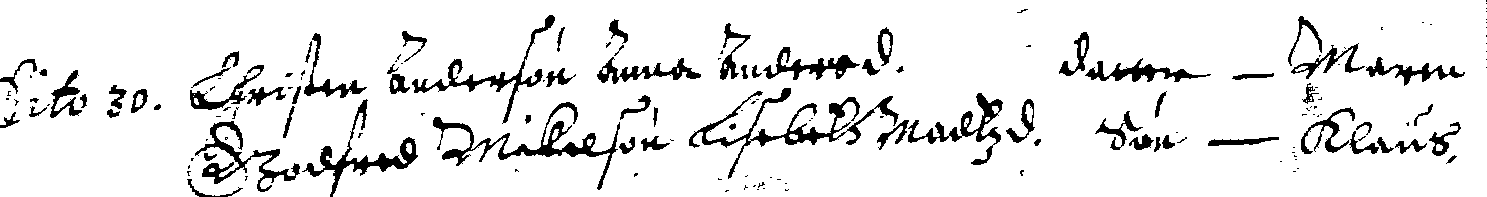 Dito 30. Christen Andersøn Anna Andersd. datter — Maren
Godfred Mikelsøn Lisebetz Madtzd. Søn — Klaus.